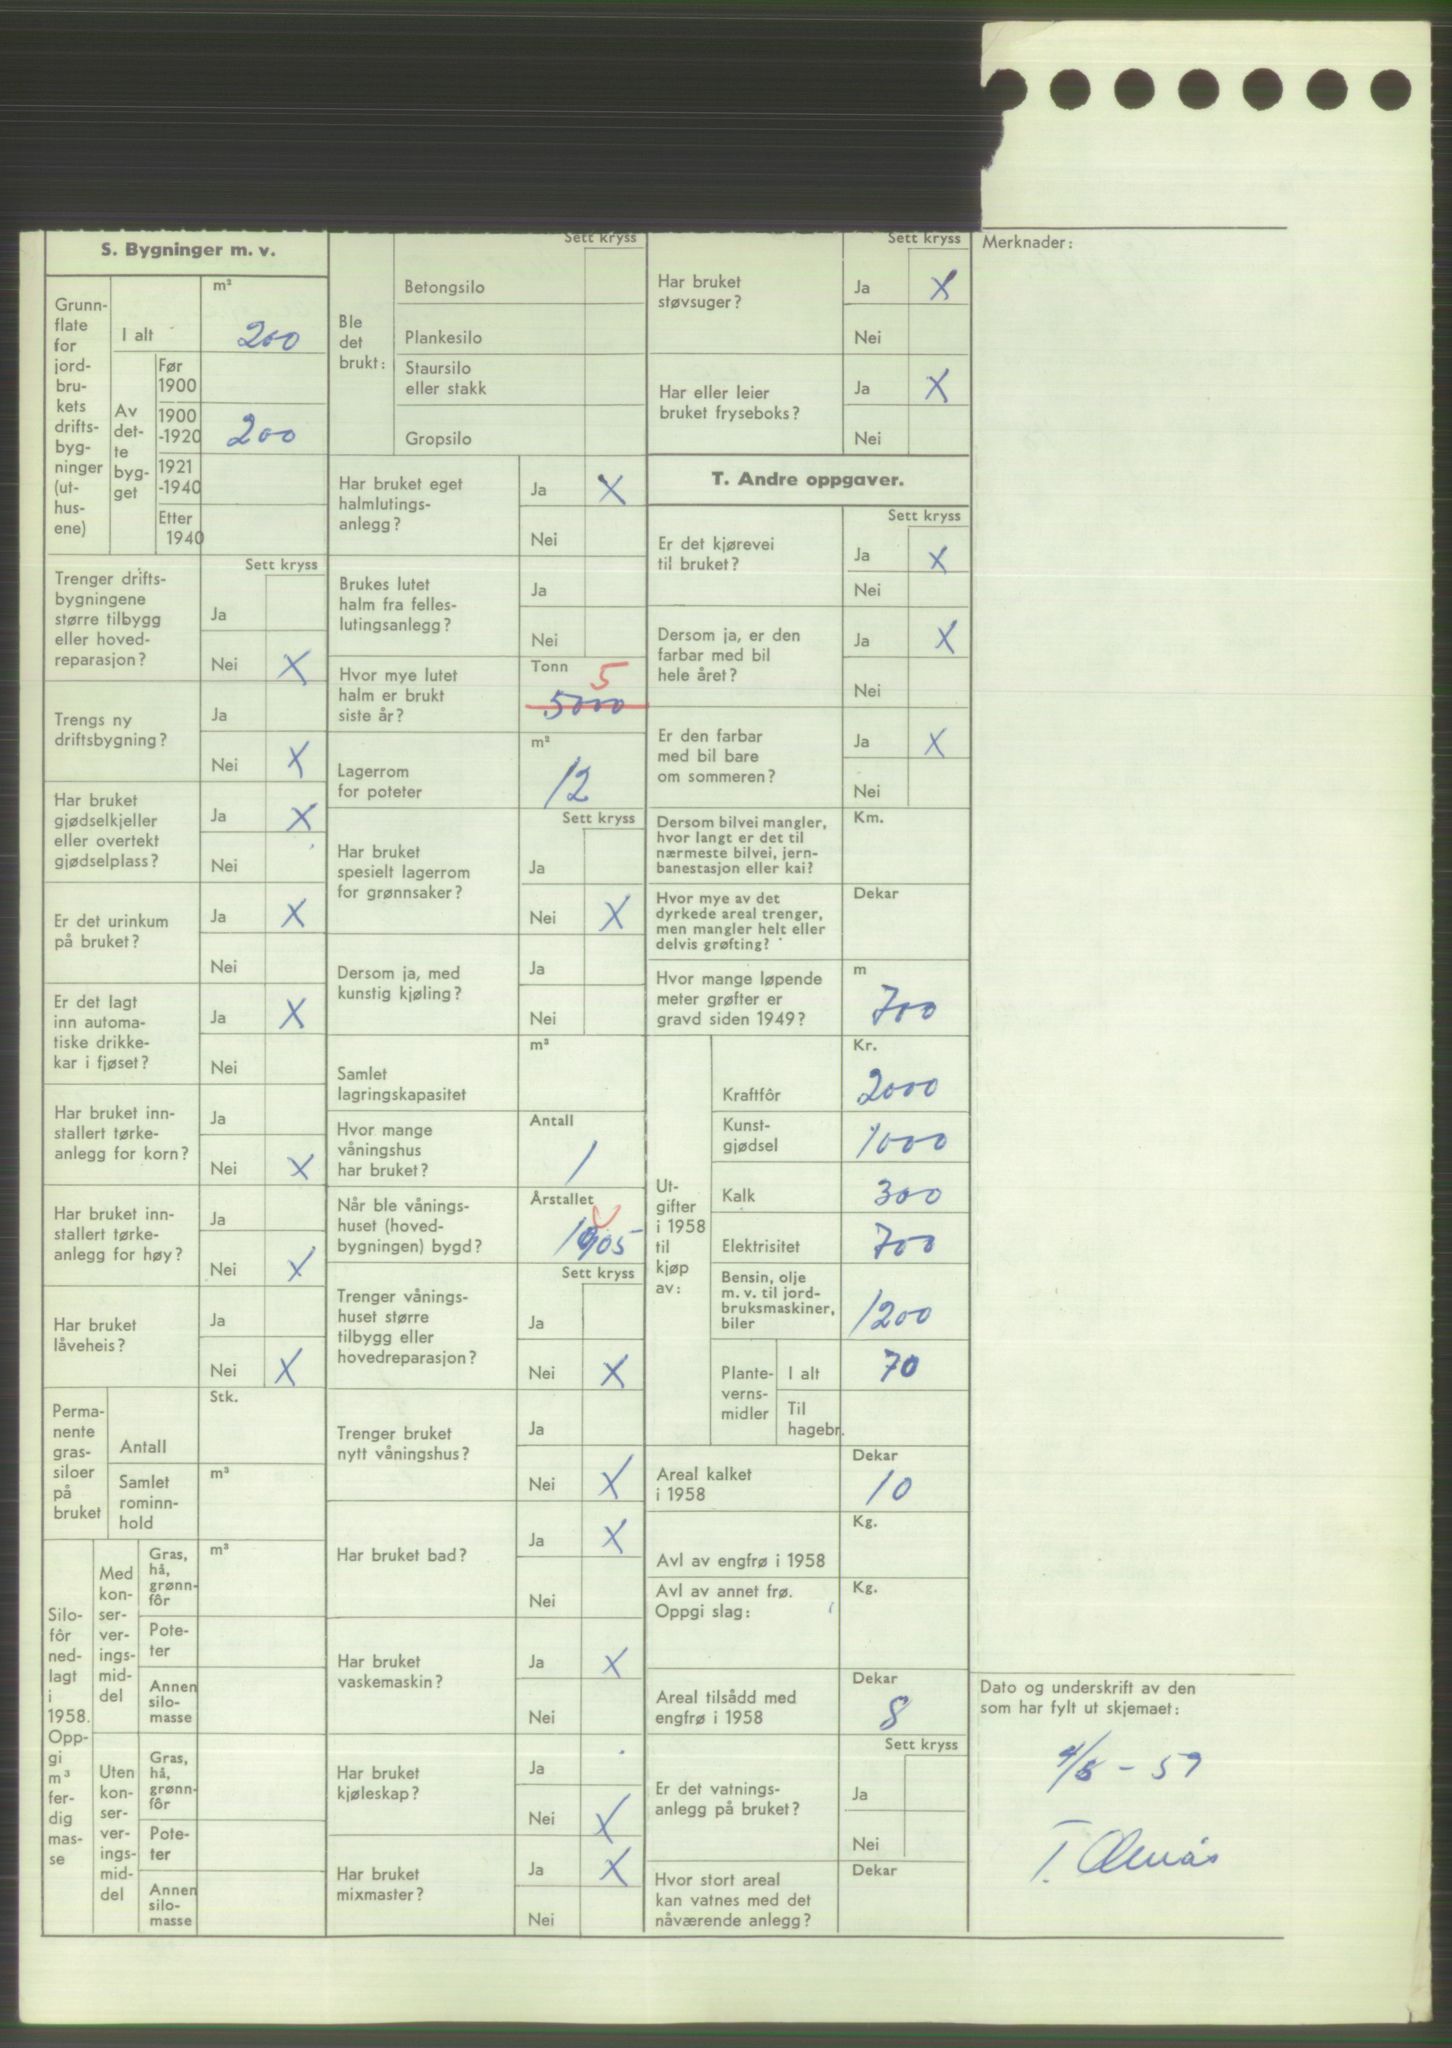 S. Bygninger m. v.
Grunn-
flate
for
jord-
bru-
kets
drifts-
byg-
ninger
(ut-
hus-
ene)
I alt
m²
200
Av
det-
te
byg-
get
Før
1900
1900
-1920
200
1921
-1940
Etter
1940
Sett kryss
Trenger drifts-
bygningene
større tilbygg
eller hoved-
reparasjon?
Ja
Nei X
Trengs ny
driftsbygning?
Ja
Nei X
Har bruket
gjødselkjeller
eller overtekt
gjødselplass?
Ja X
Nei
Er det urinkum
på bruket?
Ja X
Nei
Er det lagt
inn automa-
tiske drikke-
kar i fjøset?
Ja X
Nei
Har bruket inn-
stallert tørke-
anlegg for korn?
Ja
Nei X
Har bruket inn-
stallert tørke-
anlegg for høy?
Ja
Nei X
Har bruket
låveheis?
Ja
Nei X
Perma-
nente
gras-
siloer
på
bruket
Stk.
Antall
Samlet
rominn-
hold
m³
Silo-
fôr
ned-
lagt
i
1958.
Opp-
gi
m³
fer-
dig
mas-
se
Med
kon-
ser-
ver-
ings-
mid-
del
Gras,
hå,
grønn-
fôr
m³
Pote-
ter
Annen
silo-
masse
Uten
kon-
ser-
ver-
ings-
mid-
del
Gras,
hå,
grønn-
fôr
Pote-
ter
Annen
silo-
masse
Sett kryss
Ble
det
brukt:
Betongsilo
Plankesilo
Staursilo
eller stakk
Gropsilo
Har bruket eget
halmlutings-
anlegg?
Ja X
Nei
Brukes lutet
halm fra felles-
lutingsanlegg?
Ja
Nei
Hvor mye lutet
halm er brukt
siste år?
Tonn
5
5000
Lagerrom
for poteter
m²
12
Sett kryss
Har bruket
spesielt lagerrom
for grønnsaker?
Ja
Nei X
Dersom ja, med
kunstig kjøling?
Ja
Nei
Samlet
lagringskapasitet
m³
Hvor mange
våningshus
har bruket?
Antall
1
Når ble vånings-
huset (hoved-
bygningen) bygd?
Årstallet
1905
Sett kryss
Trenger vånings-
huset større
tilbygg eller
hovedreparasjon?
Ja
Nei X
Trenger bruket
nytt våningshus?
Ja
Nei X
Har bruket bad?
Ja X
Nei
Har bruket
vaskemaskin?
Ja X
Nei
Har bruket
kjøleskap?
Ja
Nei X
Har bruket
mixmaster?
Ja X
Nei
Sett kryss
Har bruket
støvsuger?
Ja X
Nei
Har eller leier
bruket fryseboks?
Ja X
Nei
T. Andre oppgaver.
Sett kryss
Er det kjørevei
til bruket?
Ja X
Nei
Dersom ja, er den
farbar med bil
hele året?
Ja X
Nei
Er den farbar
med bil bare
om sommeren?
Ja X
Nei
Dersom bilvei mangler,
hvor langt er det til
nærmeste bilvei, jern-
banestasjon eller kai?
Km.
Hvor mye av det
dyrkede areal trenger,
men mangler helt eller
delvis grøfting?
Dekar
Hvor mange løpende
meter grøfter er
gravd siden 1949?
m
700
Ut-
gifter
i 1958
til
kjøp
av:
Kr.
Kraftfôr 2000
Kunst-
gjødsel 1000
Kalk 300
Elektrisitet 700
Bensin, olje
m. v. til jord-
bruksmaskiner,
biler 1200
Plante-
verns-
midler
I alt 70
Til
hagebr.
Areal kalket
i 1958
Dekar
10
Avl av engfrø i 1958
Kg.
Avl av annet frø.
Oppgi slag:
Kg.
Areal tilsådd med
engfrø i 1958
Dekar
8
Sett kryss
Er det vatnings-
anlegg på bruket?
Ja
Nei
Hvor stort areal
kan vatnes med det
nåværende anlegg?
Dekar
Merknader:
Dato og underskrift av den
som har fylt ut skjemaet:
4/6 - 59